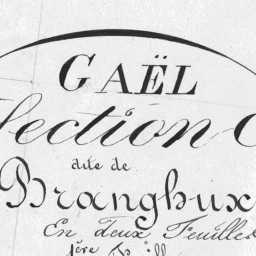 GAËL
Section
dite de
Branghux
En deux Feuilles
1ère